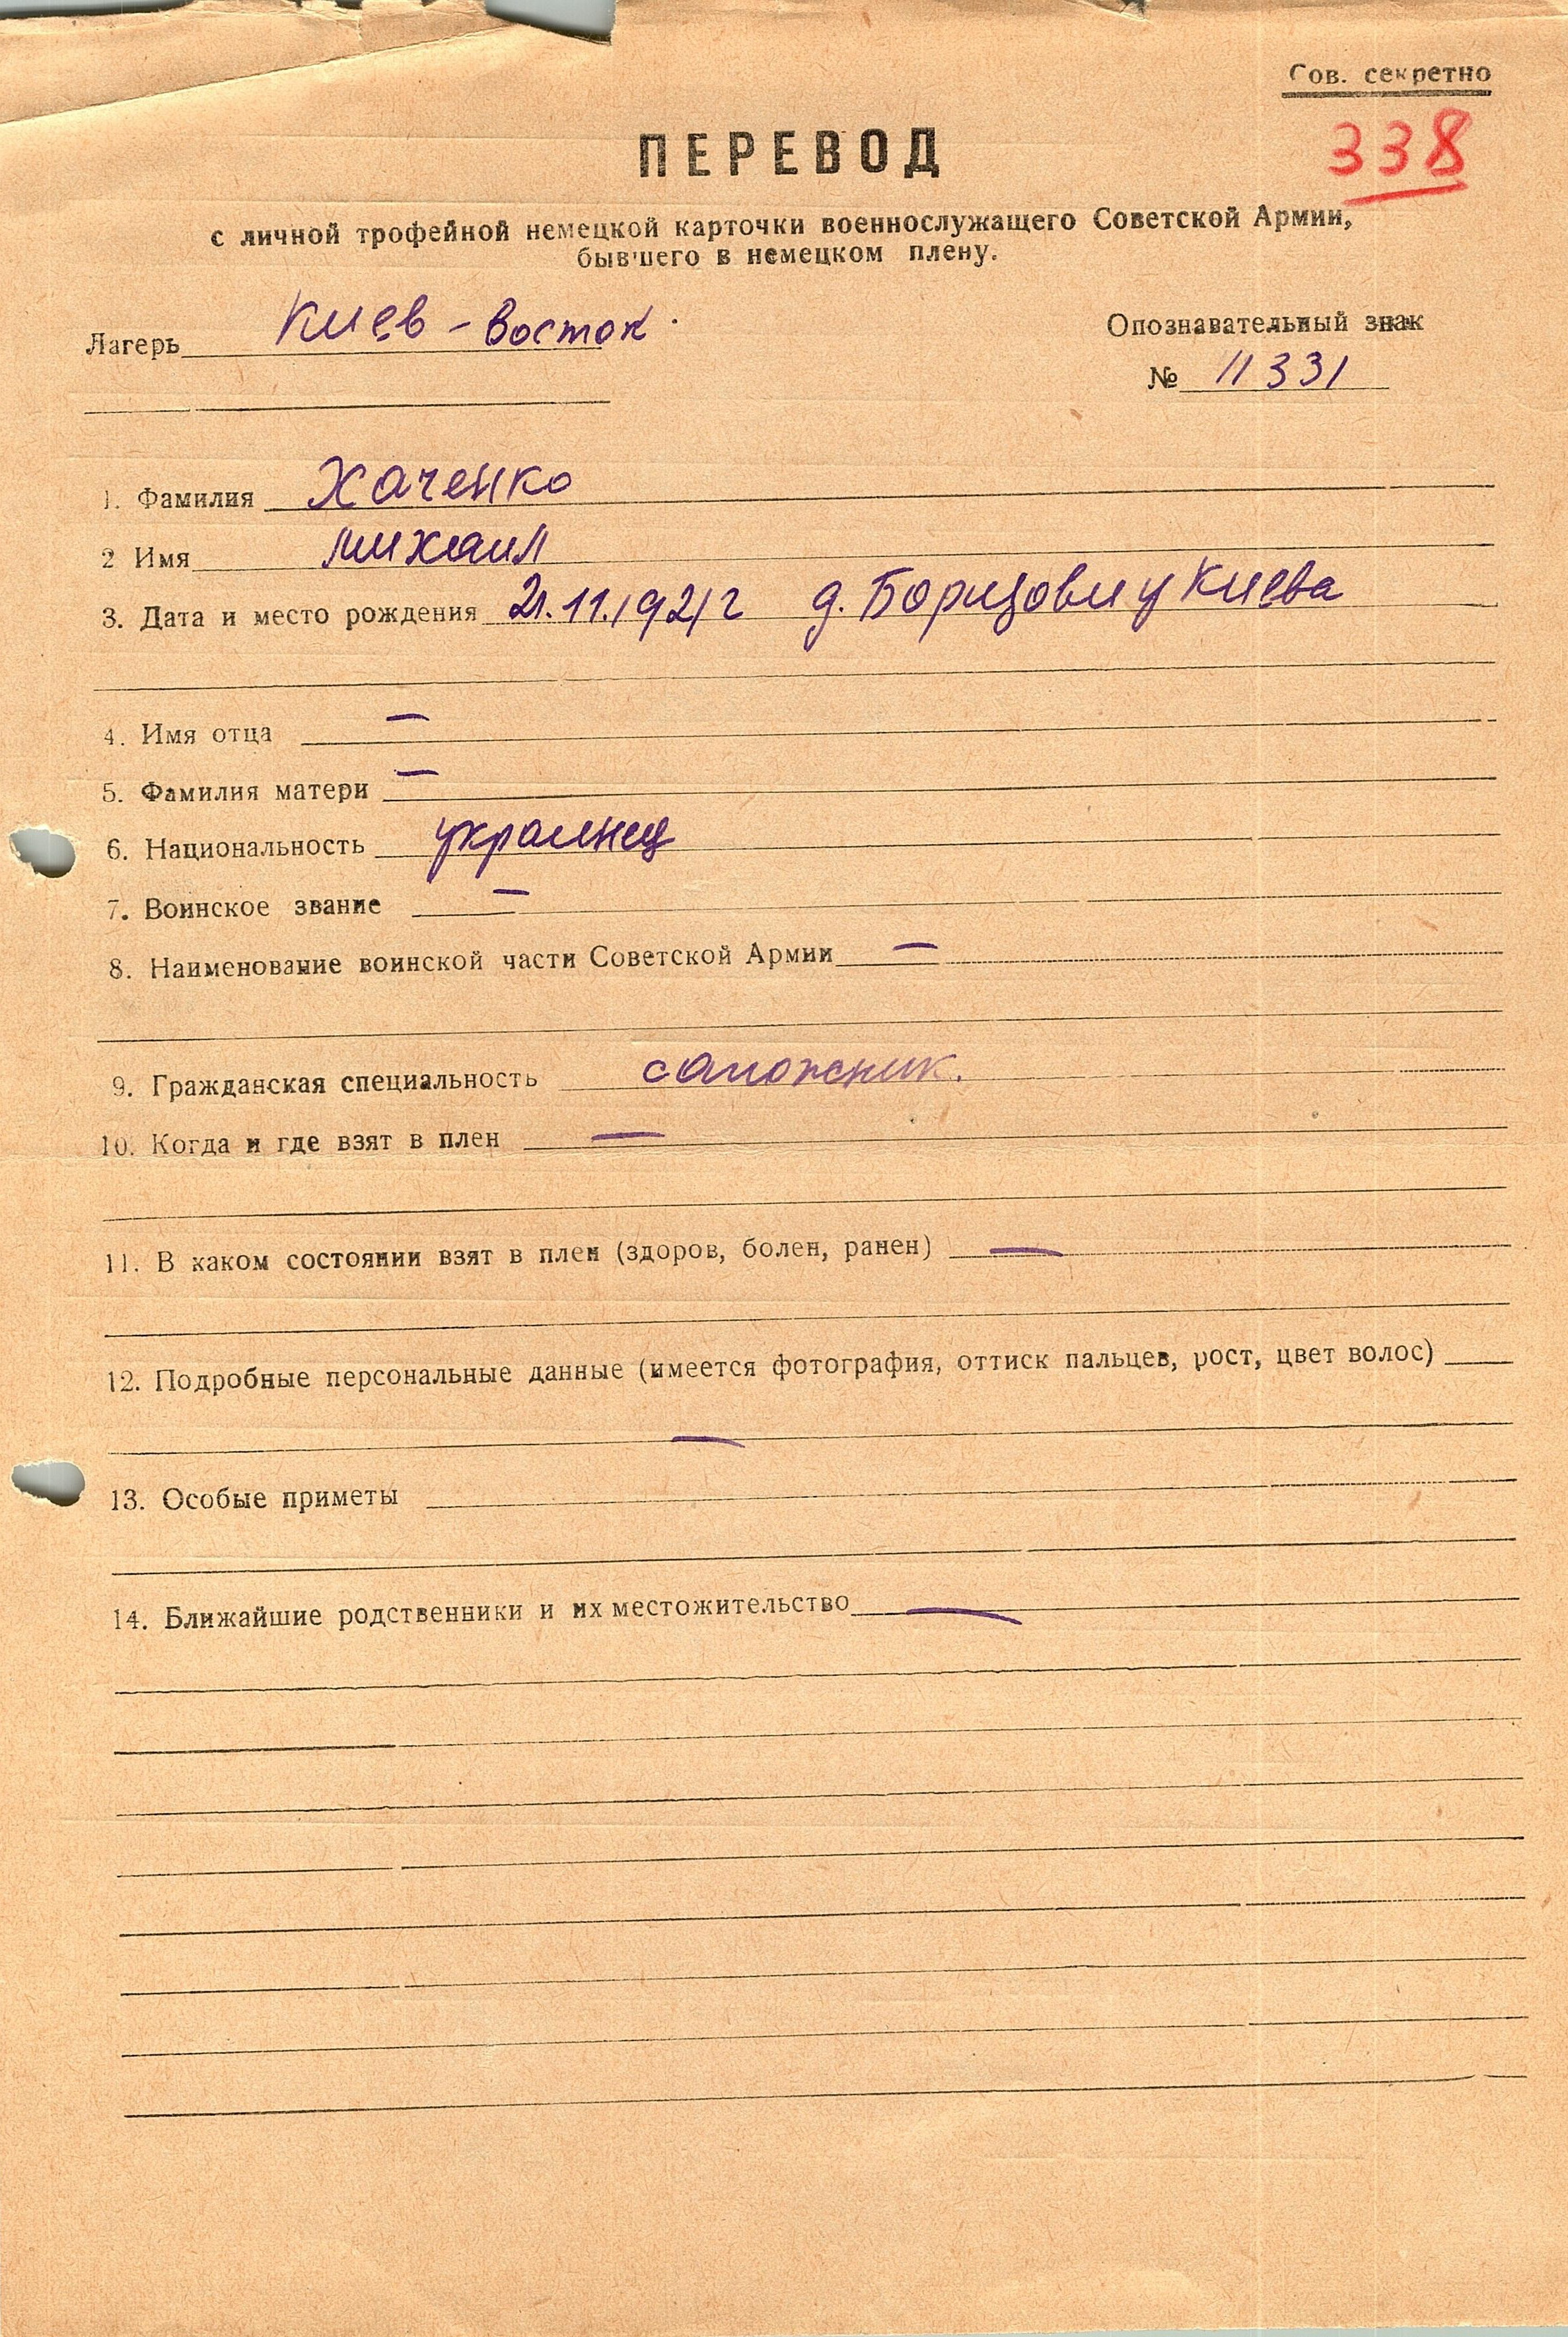 Сов. секретно
338
ПЕРЕВОД
с личной трофейной немецкой карточки военнослужащего Советской Армии,
бывшего в немецком плену.
Лагерь Киев - Восток.
Опознавательный знак
№ 11331
1. Фамилия Хаченко
2 Имя Михаил
3. Дата и место рождения 21.11.1921г д. у Киева
4. Имя отца —
5. Фамилия матери —
6. Национальность украинец
7. Воинское звание —
8. Наименование воинской части Советской Армии —
9. Гражданская специальность сапожник.
10. Когда и где взят в плен —
11. В каком состоянии взят в плен (здоров, болен, ранен) —
12. Подробные персональные данные (имеется фотография, оттиск пальцев, рост, цвет волос)
—
13. Особые приметы
14. Ближайшие родственники и их местожительство —